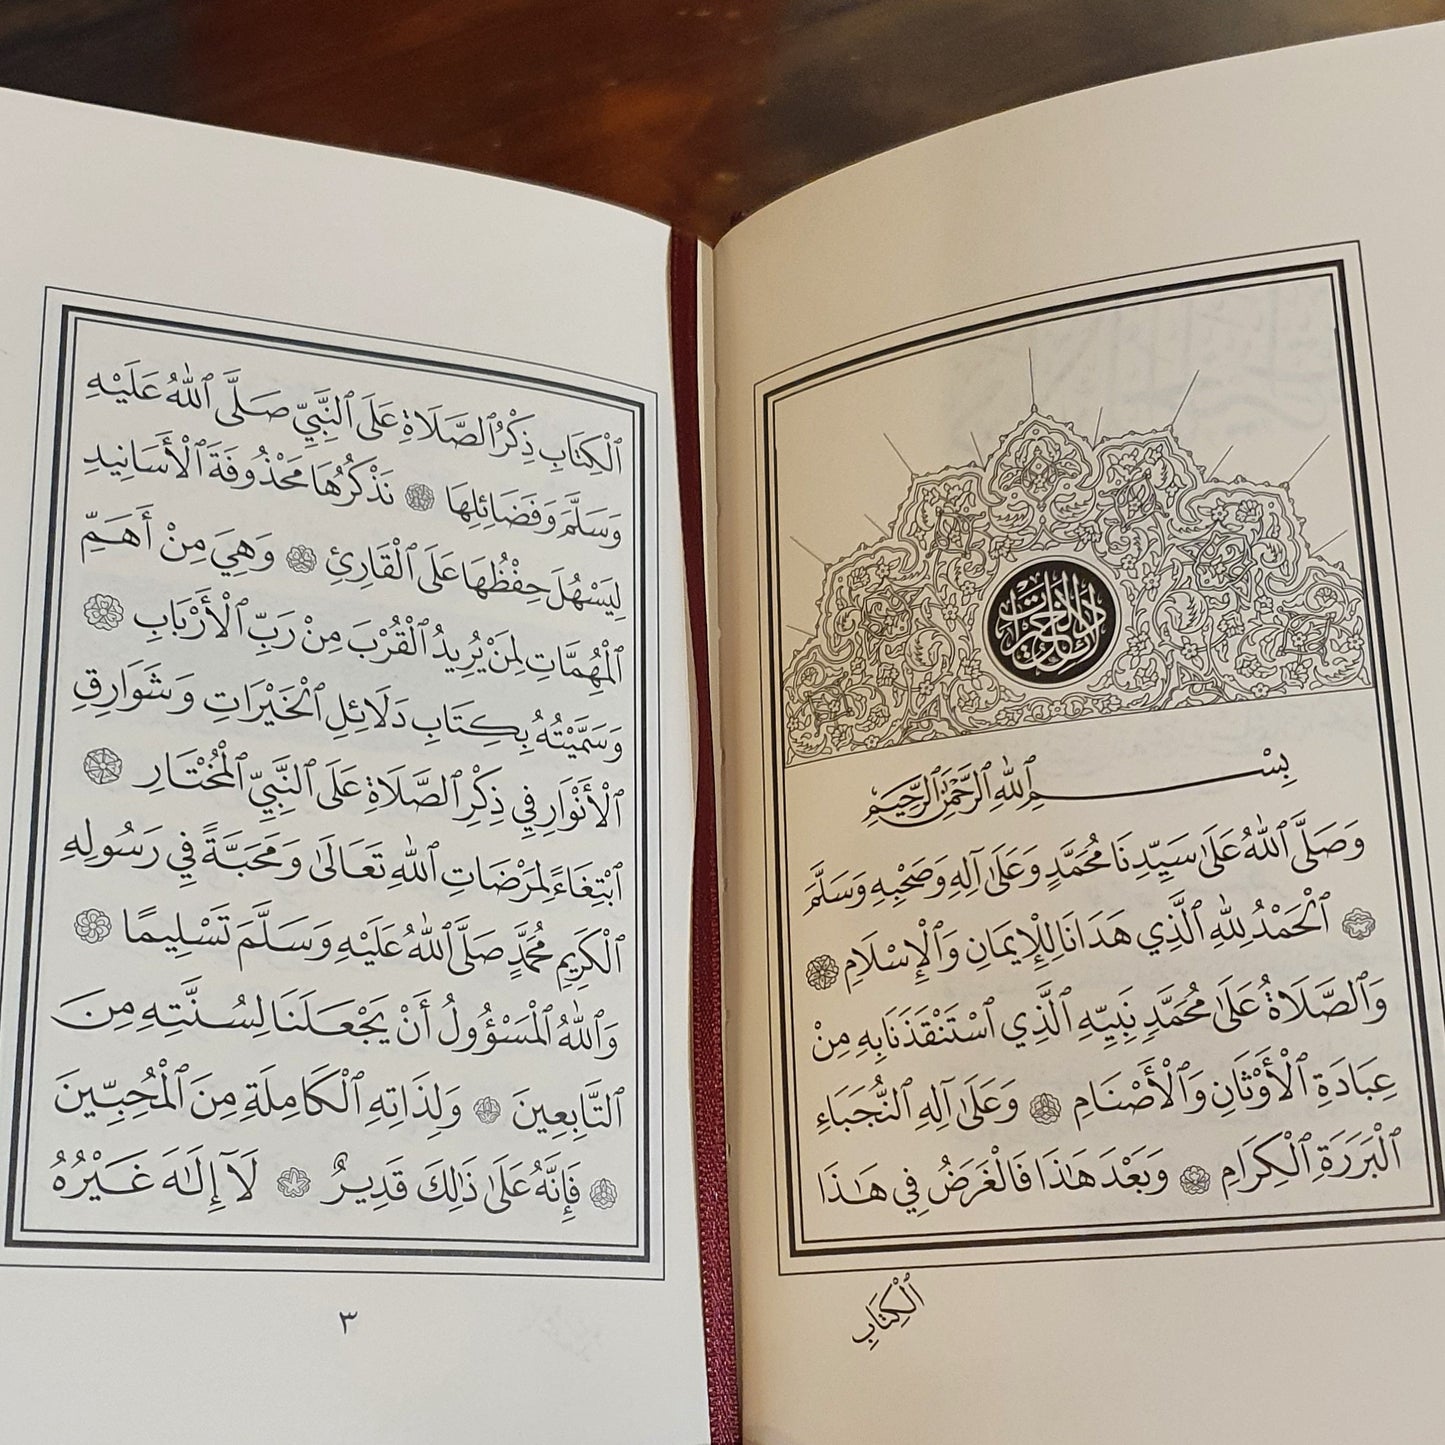 دلائل الخيرات
بِسْمِ ٱللهِ ٱلرَّحْمٰنِ ٱلرَّحِيمِ
وَصَلَّى ٱللهُ عَلَىٰ سَيِّدِنَا مُحَمَّدٍ وَعَلَىٰ آلِهِ وَصَحْبِهِ وَسَلَّمَ
۞ ٱلْحَمْدُ لِلهِ ٱلَّذِي هَدَانَا لِلْإِيمَانِ وَٱلْإِسْلَامِ ۞
وَٱلصَّلَاةُ عَلَىٰ مُحَمَّدٍ نَبِيِّهِ ٱلَّذِي ٱسْتَنْقَذَنَا بِهِ مِنْ
عِبَادَةِ ٱلْأَوْثَانِ وَٱلْأَصْنَامِ ۞ وَعَلَىٰ آلِهِ ٱلنُّجَبَاءِ
ٱلْبَرَرَةِ ٱلْكِرَامِ ۞ وَبَعْدَ هَٰذَا فَالْغَرَضُ فِي هَٰذَا
ٱلْكِتَابِ
ٱلْكِتَابِ ذِكْرُ ٱلصَّلَاةِ عَلَى ٱلنَّبِيِّ صَلَّى ٱللهُ عَلَيْهِ
وَسَلَّمَ وَفَضَائِلِهَا ۞ نَذْكُرُهَا مَحْذُوفَةَ ٱلْأَسَانِيدِ
لِيَسْهُلَ حِفْظُهَا عَلَى ٱلْقَارِئِ ۞ وَهِيَ مِنْ أَهَمِّ
ٱلْمُهِمَّاتِ لِمَنْ يُرِيدُ ٱلْقُرْبَ مِنْ رَبِّ ٱلْأَرْبَابِ ۞
وَسَمَّيْتُهُ بِكِتَابِ دَلَائِلِ ٱلْخَيْرَاتِ وَشَوَارِقِ
ٱلْأَنْوَارِ فِي ذِكْرِ ٱلصَّلَاةِ عَلَى ٱلنَّبِيِّ ٱلْمُخْتَارِ ۞
ٱبْتِغَاءً لِمَرْضَاتِ ٱللهِ تَعَالَىٰ وَمَحَبَّةً فِي رَسُولِهِ
ٱلْكَرِيمِ مُحَمَّدٍ صَلَّى ٱللهُ عَلَيْهِ وَسَلَّمَ تَسْلِيمًا ۞
وَٱللهُ ٱلْمَسْؤُولُ أَنْ يَجْعَلَنَا لِسُنَّتِهِ مِنَ
ٱلتَّابِعِينَ ۞ وَلِذَاتِهِ ٱلْكَامِلَةِ مِنَ ٱلْمُحِبِّينَ
۞ فَإِنَّهُ عَلَىٰ ذَٰلِكَ قَدِيرٌ ۞ لَآ إِلَٰهَ غَيْرُهُ
٣